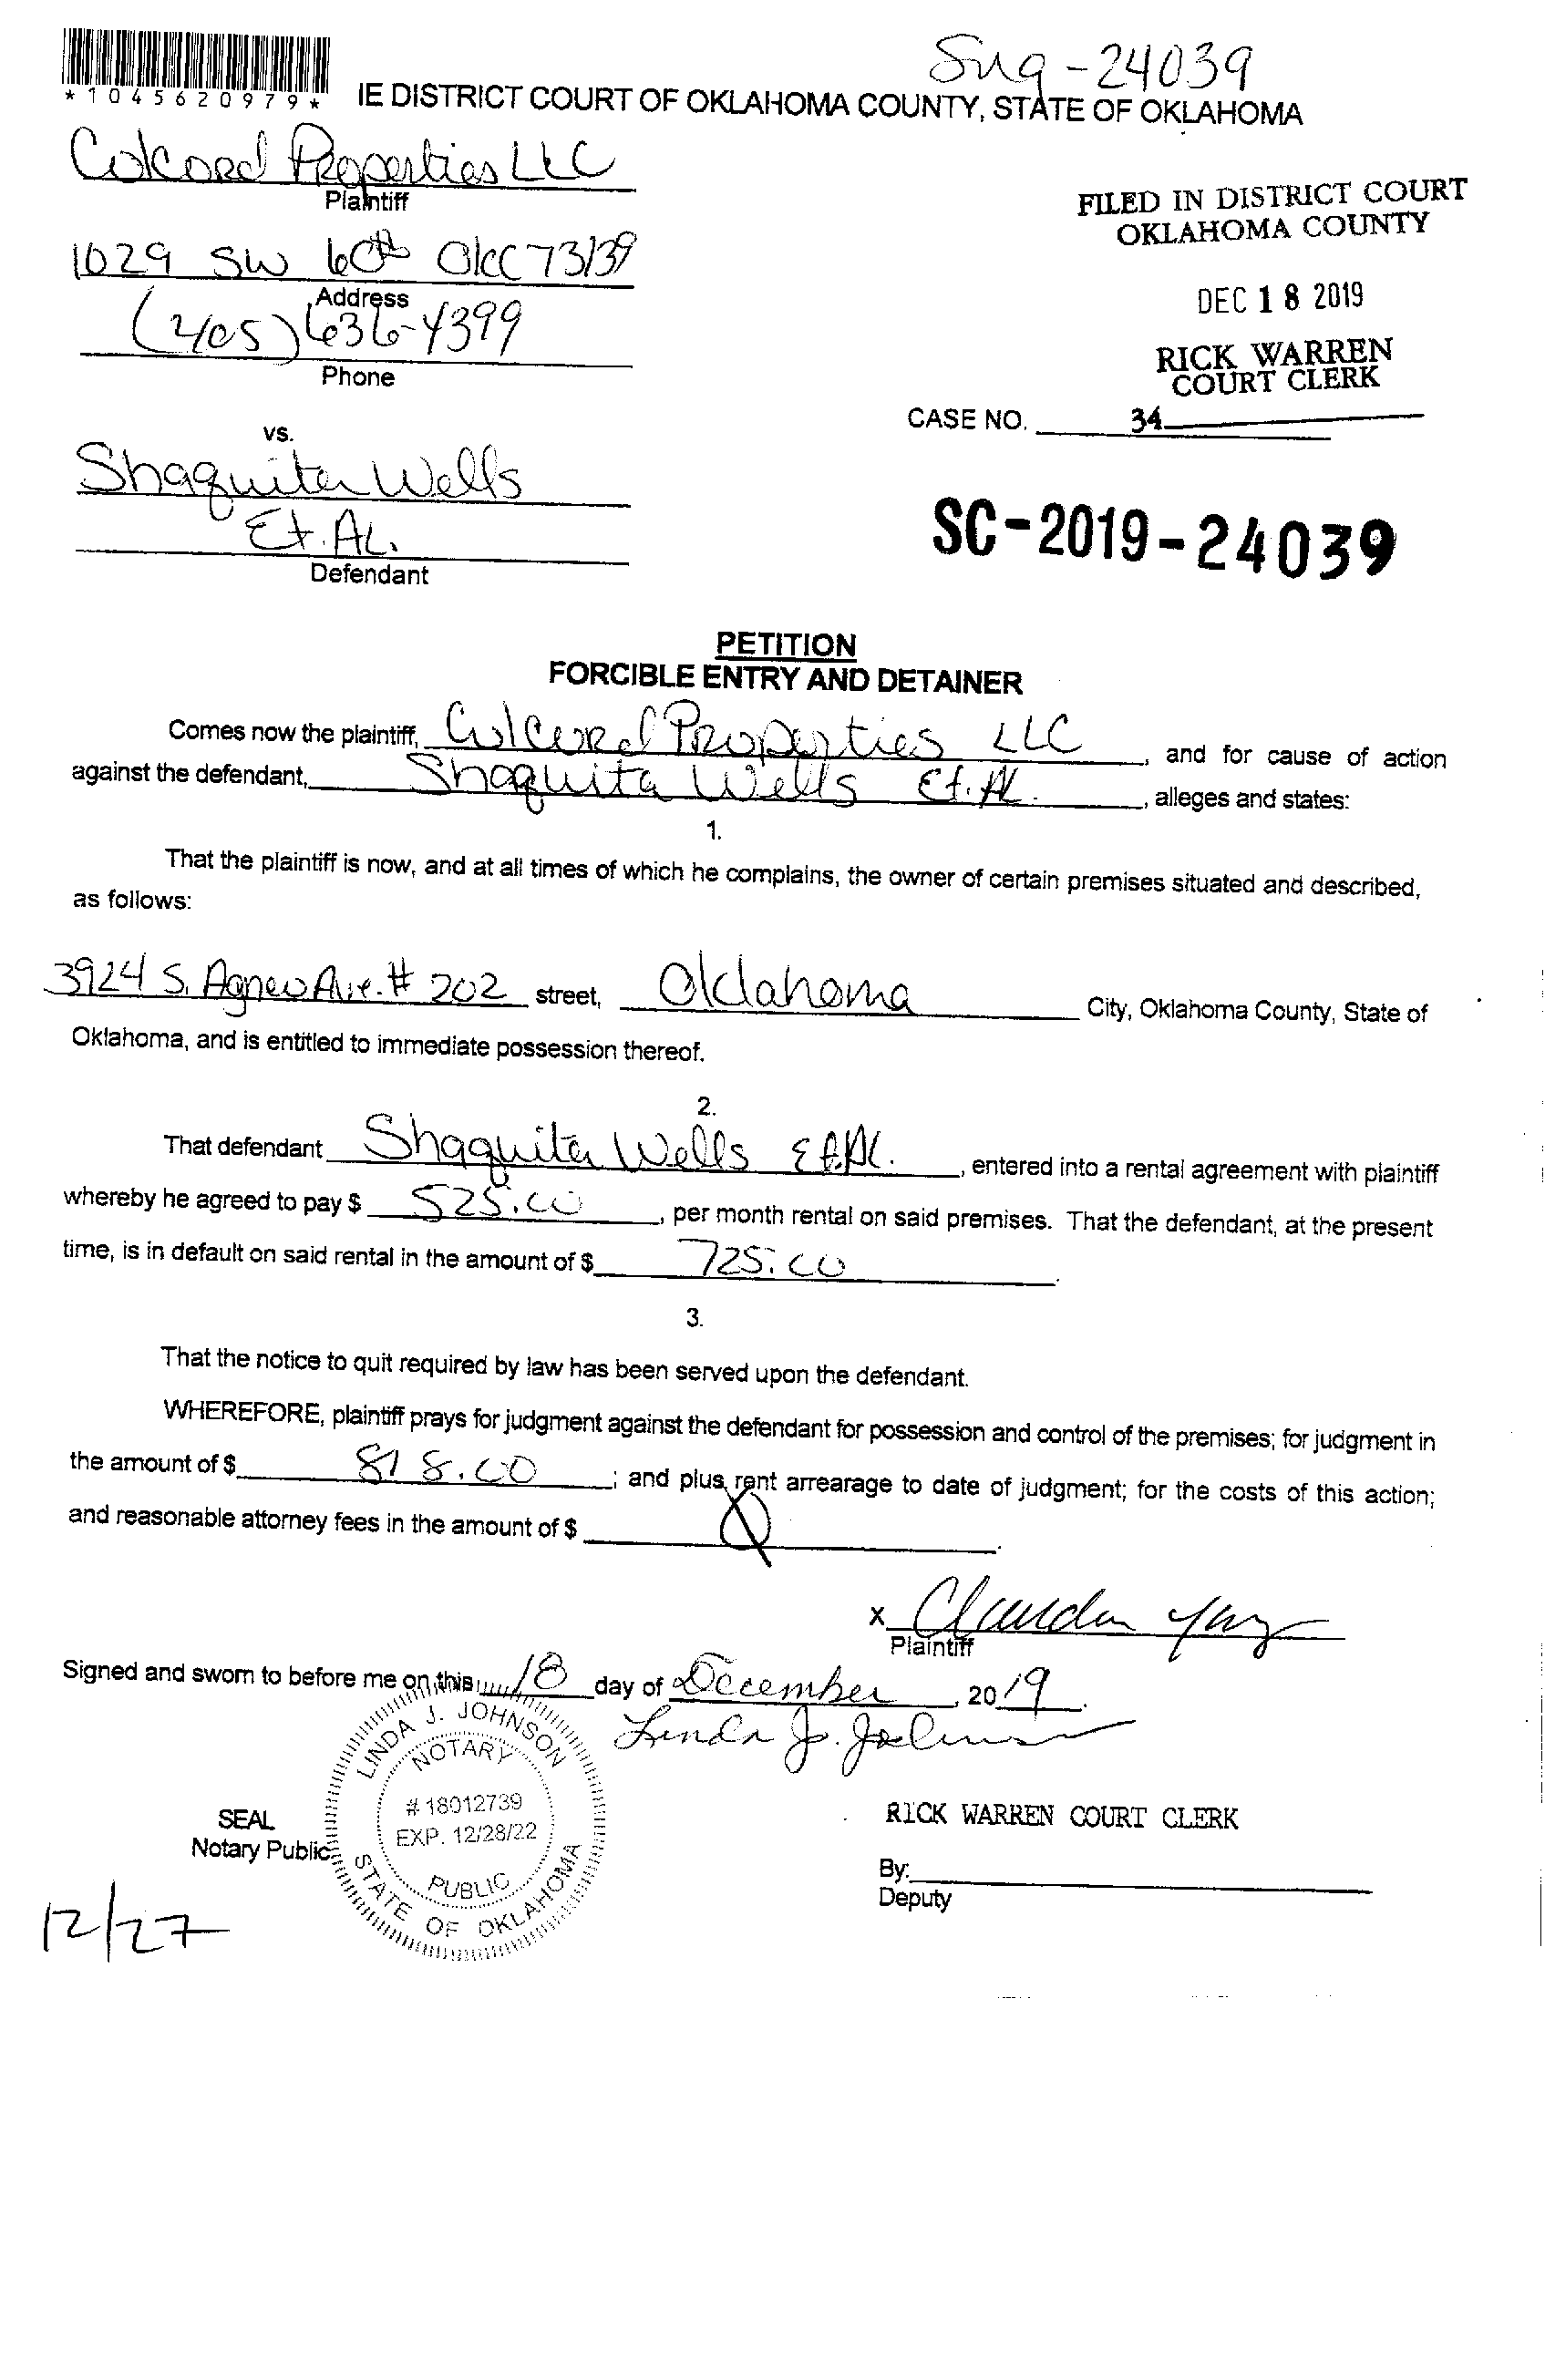 Sng-24039
*1045620979*
IE DISTRICT COURT OF OKLAHOMA COUNTY, STATE OF OKLAHOMA
Colcord Properties LLC
Plaintiff
1029 SW 60th OKC 73139
Address
(405) 636-4399
Phone
FILED IN DISTRICT COURT
OKLAHOMA COUNTY
DEC 18 2019
RICK WARREN
COURT CLERK
CASE NO. 34
vs.
Shaquita Wells
Et. AL.
Defendant
SC-2019-24039
PETITION
FORCIBLE ENTRY AND DETAINER
Comes now the plaintiff, Colcord Properties LLC, and for cause of action
against the defendant, Shaquita Wells Et. AL., alleges and states:
1.
That the plaintiff is now, and at all times of which he complains, the owner of certain premises situated and described,
as follows:
3924 S. Agnew Ave. # 202 street, Oklahoma City, Oklahoma County, State of
Oklahoma, and is entitled to immediate possession thereof.
2.
That defendant Shaquita Wells Et. AL., entered into a rental agreement with plaintiff
whereby he agreed to pay $ 525.00, per month rental on said premises. That the defendant, at the present
time, is in default on said rental in the amount of $ 725.00.
3.
That the notice to quit required by law has been served upon the defendant.
WHEREFORE, plaintiff prays for judgment against the defendant for possession and control of the premises; for judgment in
the amount of $ 818.00; and plus rent arrearage to date of judgment; for the costs of this action;
and reasonable attorney fees in the amount of $
x
Plaintiff
Signed and sworn to before me on this 18 day of December, 2019.
Linda J. Johnson
LINDA J. JOHNSON
NOTARY
# 18012739
EXP. 12/28/22
PUBLIC
STATE OF OKLAHOMA
SEAL
Notary Public
RICK WARREN COURT CLERK
By:
Deputy
12/27